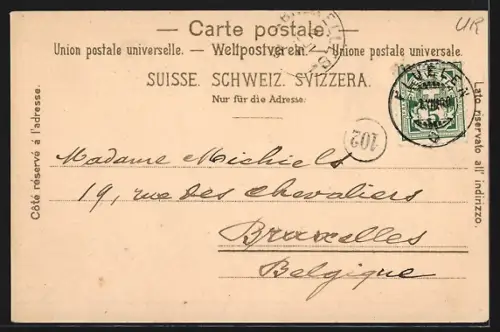 — Carte postale. —
UR
Union postale universelle. — Weltpostverein. — Unione postale universale.
SUISSE. SCHWEIZ. SVIZZERA.
Nur für die Adresse.
Côté réservé à l'adresse.
Lato riservato all' indirizzo.
FLUELEN
102
Madame Michiels
19, rue des Chevaliers
Bruxelles
Belgique